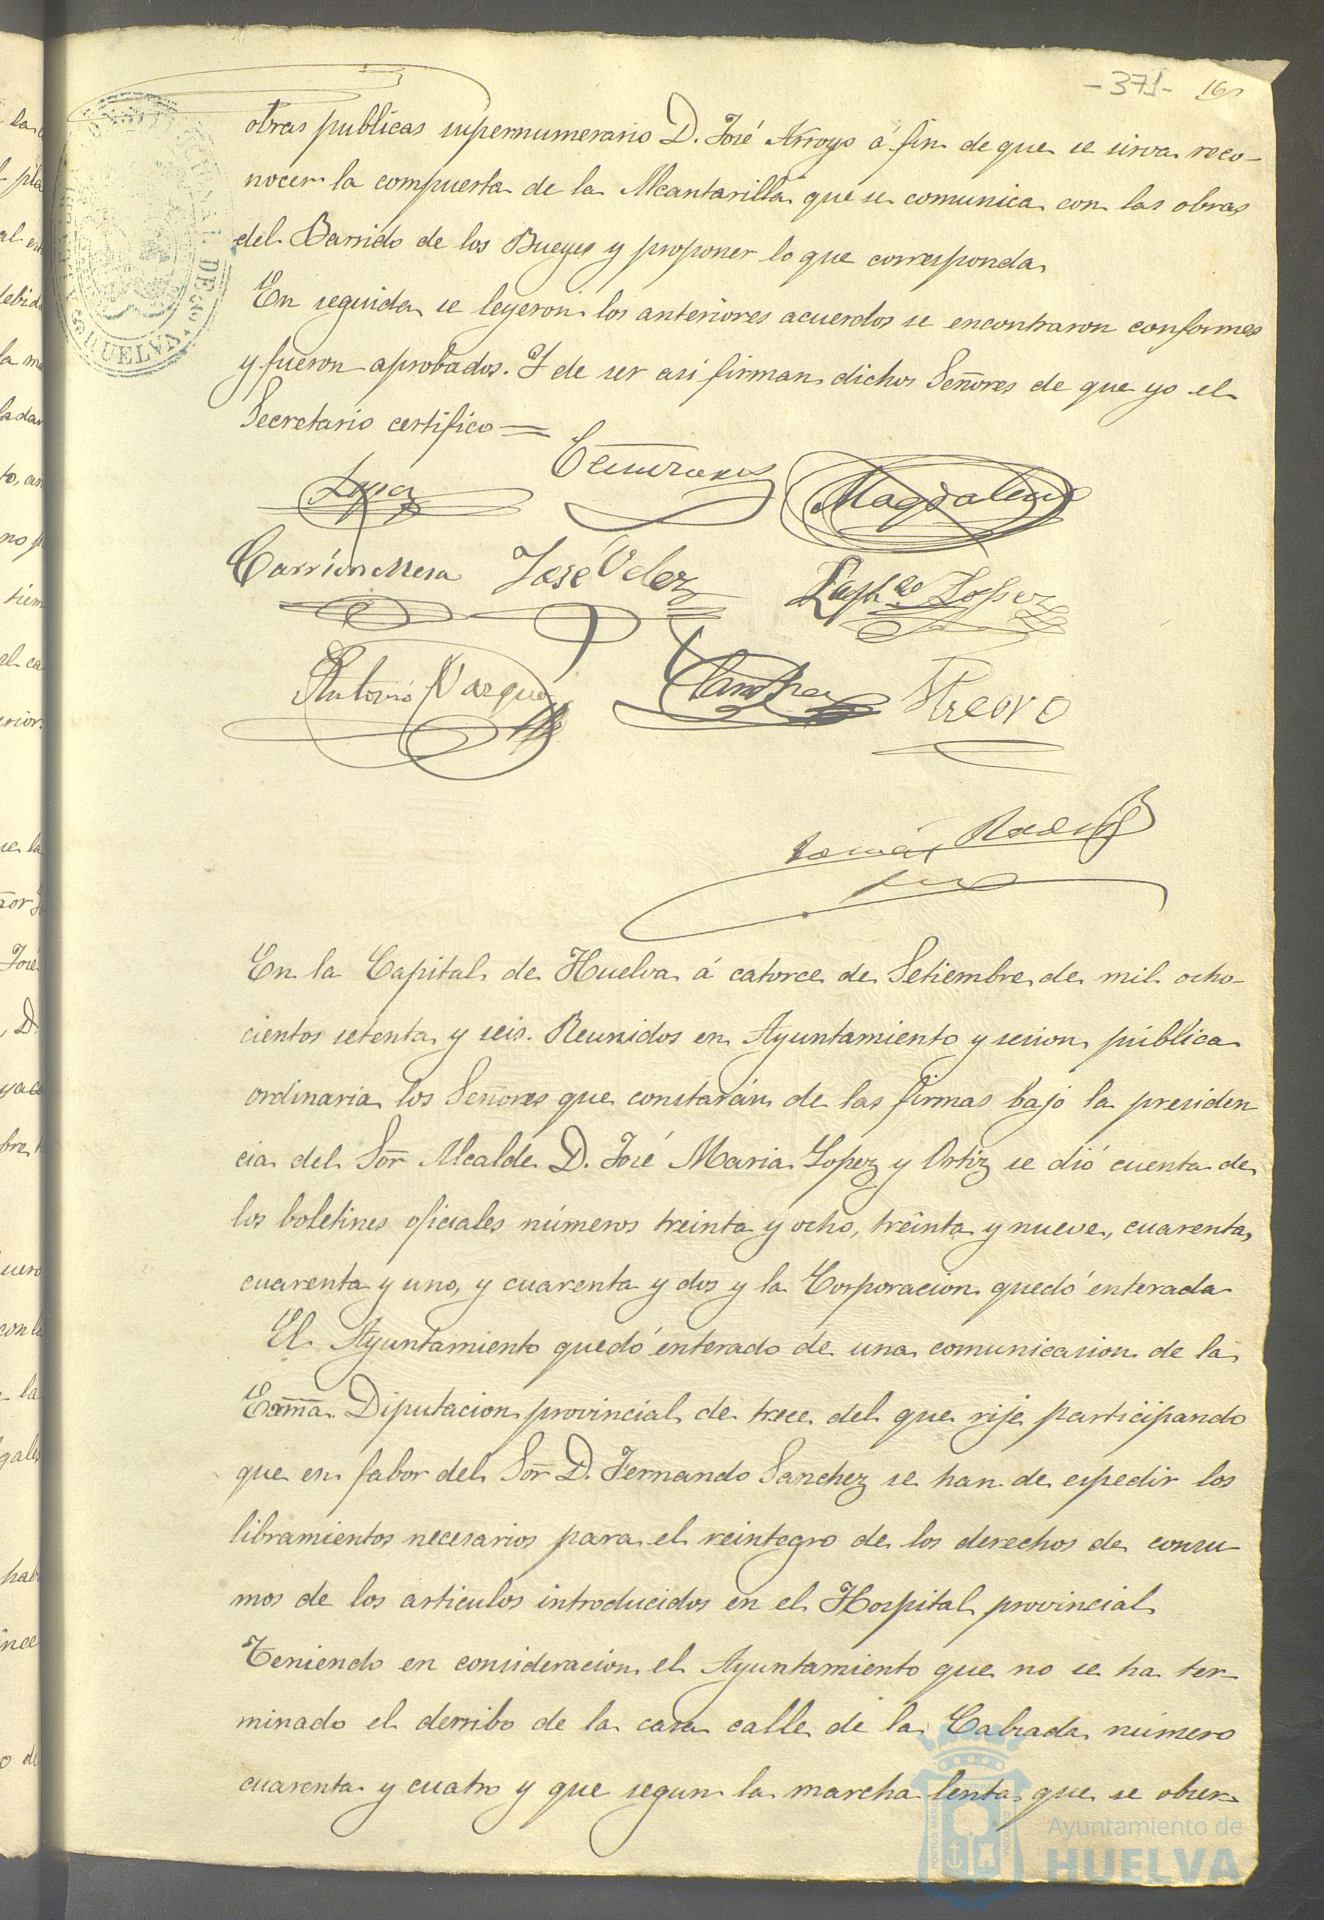 -371- 16
obras publicas supernumerario D. José Arroyo á fin de que se sirva reco-
nocer la compuerta de la Alcantarilla que se comunica con las obras
del Barrido de los Bueyes y proponer lo que corresponda
En seguida se leyeron los anteriores acuerdos se encontraron conformes
y fueron aprobados. Y de ser asi firman dichos Señores de que yo el
Secretario certifico=
Lopez
Magdalena
Carrion Mesa José Velez Lopez
Antonio Vazquez Sanchez
Tomás
En la Capital de Huelva á catorce de Setiembre de mil ocho-
cientos setenta y seis. Reunidos en Ayuntamiento y sesion pública
ordinaria los Señores que constarán de las firmas bajo la presiden
cia del Sor Alcalde D. José Maria Lopez y Ortiz se dió cuenta de
los boletines oficiales números treinta y ocho, treinta y nueve, cuarenta,
cuarenta y uno, y cuarenta y dos y la Corporacion quedó enterada
El Ayuntamiento quedó enterado de una comunicacion de la
Exma. Diputacion provincial de trece del que rije participando
que en fabor del Sor D. Fernando Sanchez se han de espedir los
libramientos necesarios para el reintegro de los derechos de consu
mos de los articulos introducidos en el Hospital provincial
Teniendo en consideracion el Ayuntamiento que no se ha ter-
minado el derribo de la casa calle de la Calzada número
cuarenta y cuatro y que segun la marcha lenta que se obser-
Ayuntamiento de
HUELVA